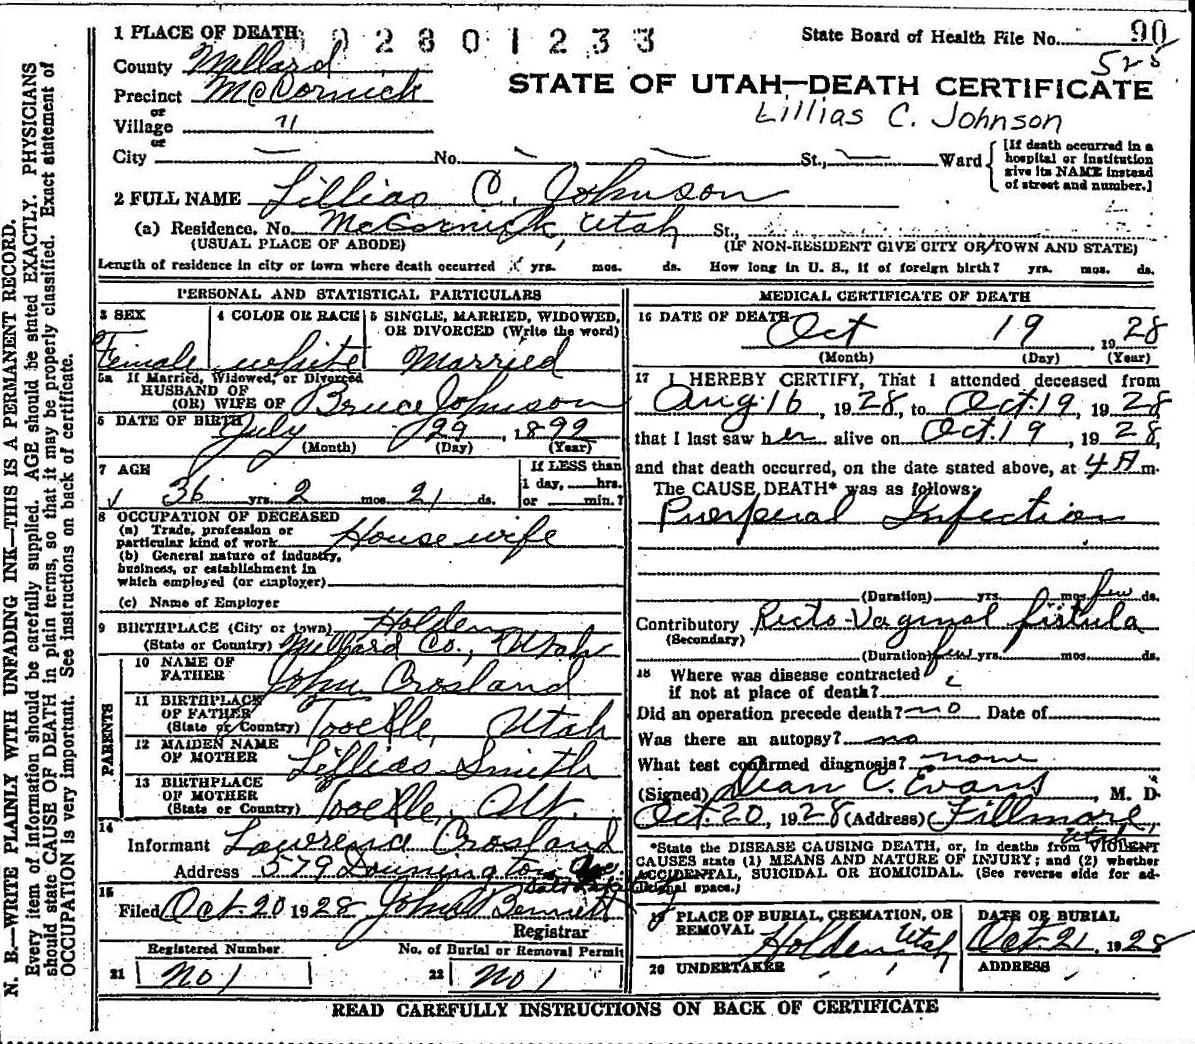 N. B.—WRITE PLAINLY WITH UNFADING INK—THIS IS A PERMANENT RECORD.
Every item of information should be carefully supplied. AGE should be stated EXACTLY. PHYSICIANS
should state CAUSE OF DEATH in plain terms, so that it may be properly classified. Exact statement of
OCCUPATION is very important. See instructions on back of certificate.
1 PLACE OF DEATH
02801233
State Board of Health File No. 90
525
County Millard
Precinct McCornick
or
Village "
or
STATE OF UTAH—DEATH CERTIFICATE
Lillias C. Johnson
City — No. — St., — Ward
[If death occurred in a
hospital or institution
give its NAME instead
of street and number.]
2 FULL NAME Lillias C. Johnson
(a) Residence. No. McCornick, Utah St.,
(USUAL PLACE OF ABODE) (IF NON-RESIDENT GIVE CITY OR TOWN AND STATE)
Length of residence in city or town where death occurred yrs. mos. ds. How long in U. S., if of foreign birth? yrs. mos. ds.
PERSONAL AND STATISTICAL PARTICULARS
3 SEX 4 COLOR OR RACE 5 SINGLE, MARRIED, WIDOWED,
OR DIVORCED (Write the word)
Female white Married
5a If Married, Widowed, or Divorced
HUSBAND OF
(OR) WIFE OF Bruce Johnson
6 DATE OF BIRTH July 29, 1892
(Month) (Day) (Year)
7 AGE If LESS than
1 day, hrs.
36 yrs. 2 mos. 21 ds. or min.?
8 OCCUPATION OF DECEASED
(a) Trade, profession or
particular kind of work Housewife
(b) General nature of industry,
business, or establishment in
which employed (or employer)
(c) Name of Employer
9 BIRTHPLACE (City or town) Holden
(State or Country) Millard Co., Utah
PARENTS
10 NAME OF
FATHER John Crosland
11 BIRTHPLACE
OF FATHER
(State or Country) Tooelle, Utah
12 MAIDEN NAME
OF MOTHER Lillias Smith
13 BIRTHPLACE
OF MOTHER
(State or Country) Tooelle, Ut.
14
Informant Lawrence Crosland
Address 579 Downington Ave
Salt Lake City
15
Filed Oct. 20 1928 John Bennett
Registrar
Registered Number No. of Burial or Removal Permit
21 No 1 22 No 1
MEDICAL CERTIFICATE OF DEATH
16 DATE OF DEATH Oct 19, 1928
(Month) (Day) (Year)
17 I HEREBY CERTIFY, That I attended deceased from
Aug 16, 1928, to Oct. 19, 1928
that I last saw her alive on Oct. 19, 1928,
and that death occurred, on the date stated above, at 4 A m.
The CAUSE DEATH* was as follows:
Puerperal Infection
(Duration) yrs. mos. few ds.
Contributory Recto-Vaginal fistula
(Secondary)
(Duration) few yrs. mos. ds.
18 Where was disease contracted
if not at place of death?
Did an operation precede death? no Date of
Was there an autopsy? no
What test confirmed diagnosis? none
(Signed) Dean C. Evans M. D.
Oct. 20, 1928 (Address) Fillmore,
Utah
*State the DISEASE CAUSING DEATH, or, in deaths from VIOLENT
CAUSES state (1) MEANS AND NATURE OF INJURY; and (2) whether
ACCIDENTAL, SUICIDAL OR HOMICIDAL. (See reverse side for ad-
ditional space.)
19 PLACE OF BURIAL, CREMATION, OR
REMOVAL Holden Utah
DATE OR BURIAL
Oct-21, 1928
20 UNDERTAKER ADDRESS
READ CAREFULLY INSTRUCTIONS ON BACK OF CERTIFICATE